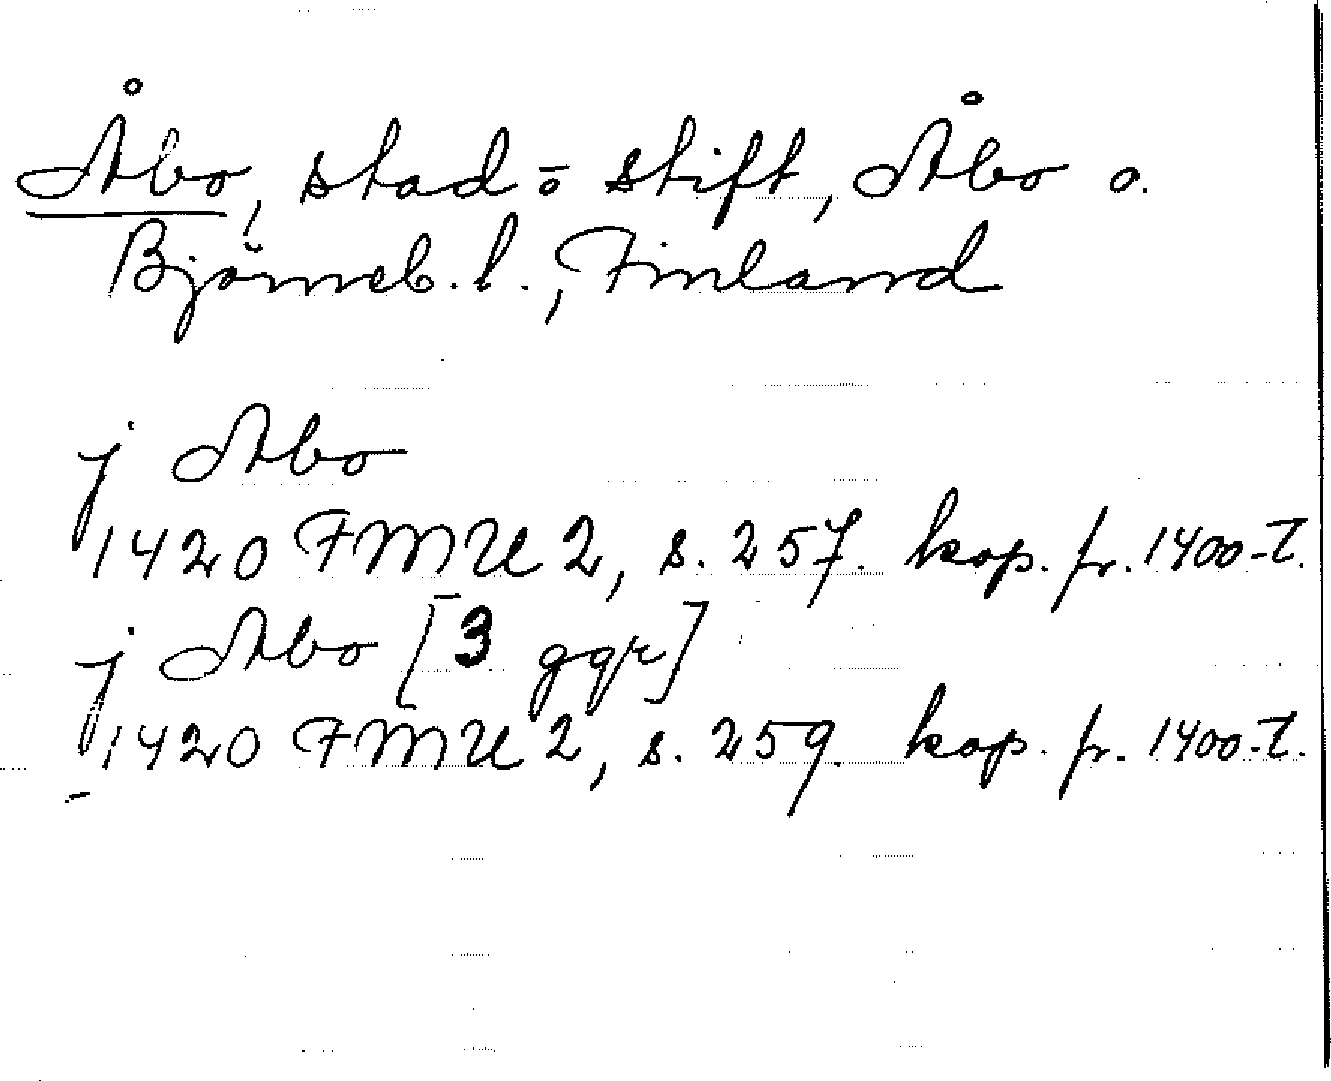 Åbo, stad o stift, Åbo o.
Björneb. l., Finland
j Abo
1420 FMU 2, s. 257. kop. fr. 1400-t.
j Abo [3 ggr]
1420 FMU 2, s. 259. kop. fr. 1400-t.